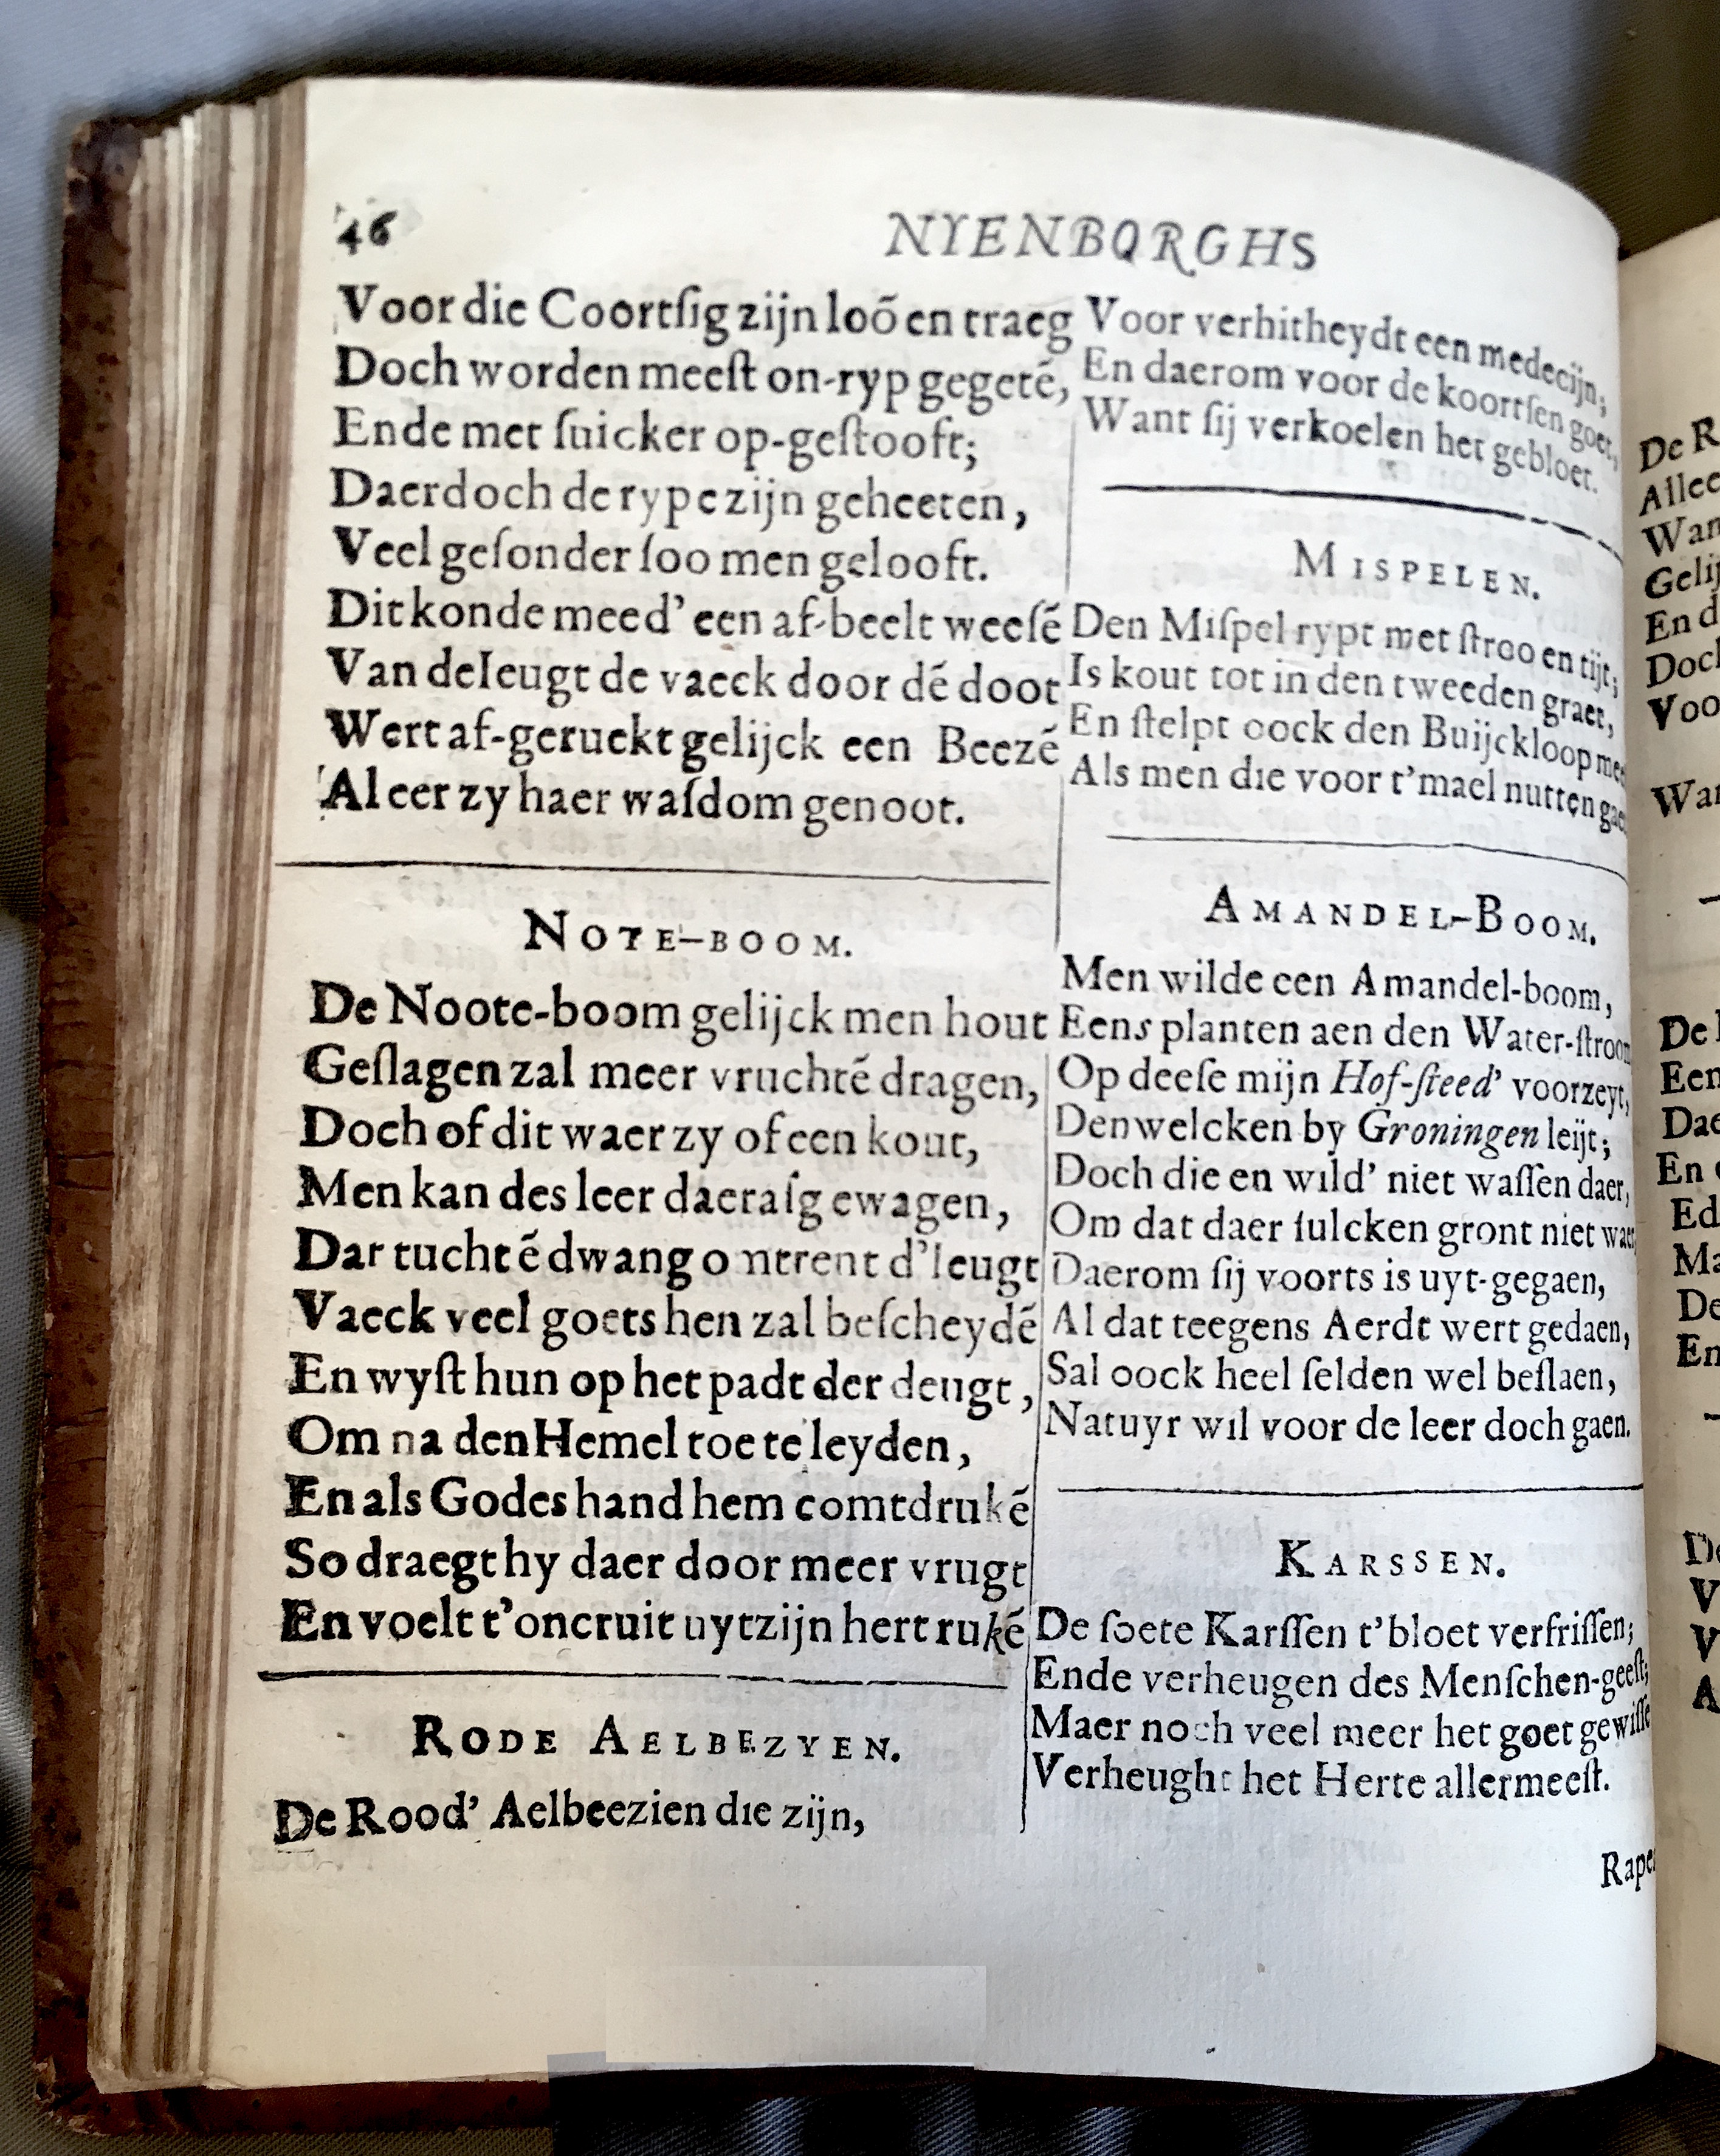 46
NYENBORGHS
Voor die Coortſig zijn loõ en traeg
Doch worden meeſt on-ryp gegeté,
Ende met ſuicker op-geſtooft;
Daer doch de rype zijn geheeten,
Veel geſonder ſoo men gelooft.
Dit konde meed' een af-beelt weeſé
Van de Ieugt de vaeck door dé doot
Wert af-geruckt gelijck een Beezé
Al eer zy haer waſdom genoot.
NOTE-BOOM.
De Noote-boom gelijck men hout
Geſlagen zal meer vruchté dragen,
Doch of dit waer zy of een kout,
Men kan des leer daer aſg ewagen,
Dat tuchté dwang o ntrent d'Ieugt
Vaeck veel goets hen zal beſcheydé
En wyſt hun op het padt der deugt,
Om na den Hemel toe te leyden,
En als Godes hand hem comt druké
So draegt hy daer door meer vrugt
En voelt t'oncruit uyt zijn hert ruké
RODE AELBEZYEN.
De Rood' Aelbeezien die zijn,
Voor verhitheydt een medecijn;
En daerom voor de koortſen goet,
Want ſij verkoelen het gebloet.
MISPELEN.
Den Miſpel rypt met ſtroo en tijt;
Is kout tot in den tweeden graet,
En ſtelpt oock den Buijckloop mee
Als men die voor t'mael nutten gae
AMANDEL-BOOM.
Men wilde een Amandel-boom,
Eens planten aen den Water-ſtroom
Op deeſe mijn Hof-ſteed' voorzeyt,
Den welcken by Groningen leijt;
Doch die en wild' niet waſſen daer,
Om dat daer ſulcken gront niet waer
Daerom ſij voorts is uyt-gegaen,
Al dat teegens Aerdt wert gedaen,
Sal oock heel ſelden wel beſlaen,
Natuyr wil voor de leer doch gaen.
KARSSEN.
De ſoete Karſſen t'bloet verfriſſen;
Ende verheugen des Menſchen-geeſt;
Maer noch veel meer het goet gewiſſe
Verheught het Herte allermeeſt.
Rape
De R
Allee
Wan
Gelij
En d
Doch
Voo
Wan
De
Een
Dae
En
Ed
Ma
De
En
De
V
V
A